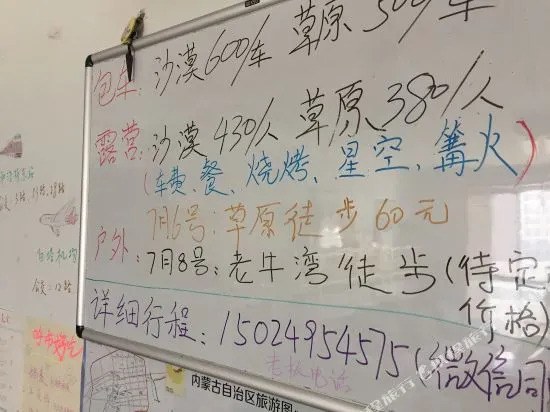 包车: 沙漠600/车 草原500/车
露营: 沙漠 430/人 草原380/人
(车费、餐、烧烤、星空、篝火)
户外: 7月6号: 草原徒步60元
7月8号: 老牛湾徒步(待定
价格)
详细行程: 15024954575(微信同
老板电话
内蒙古自治区旅游图
白塔机场